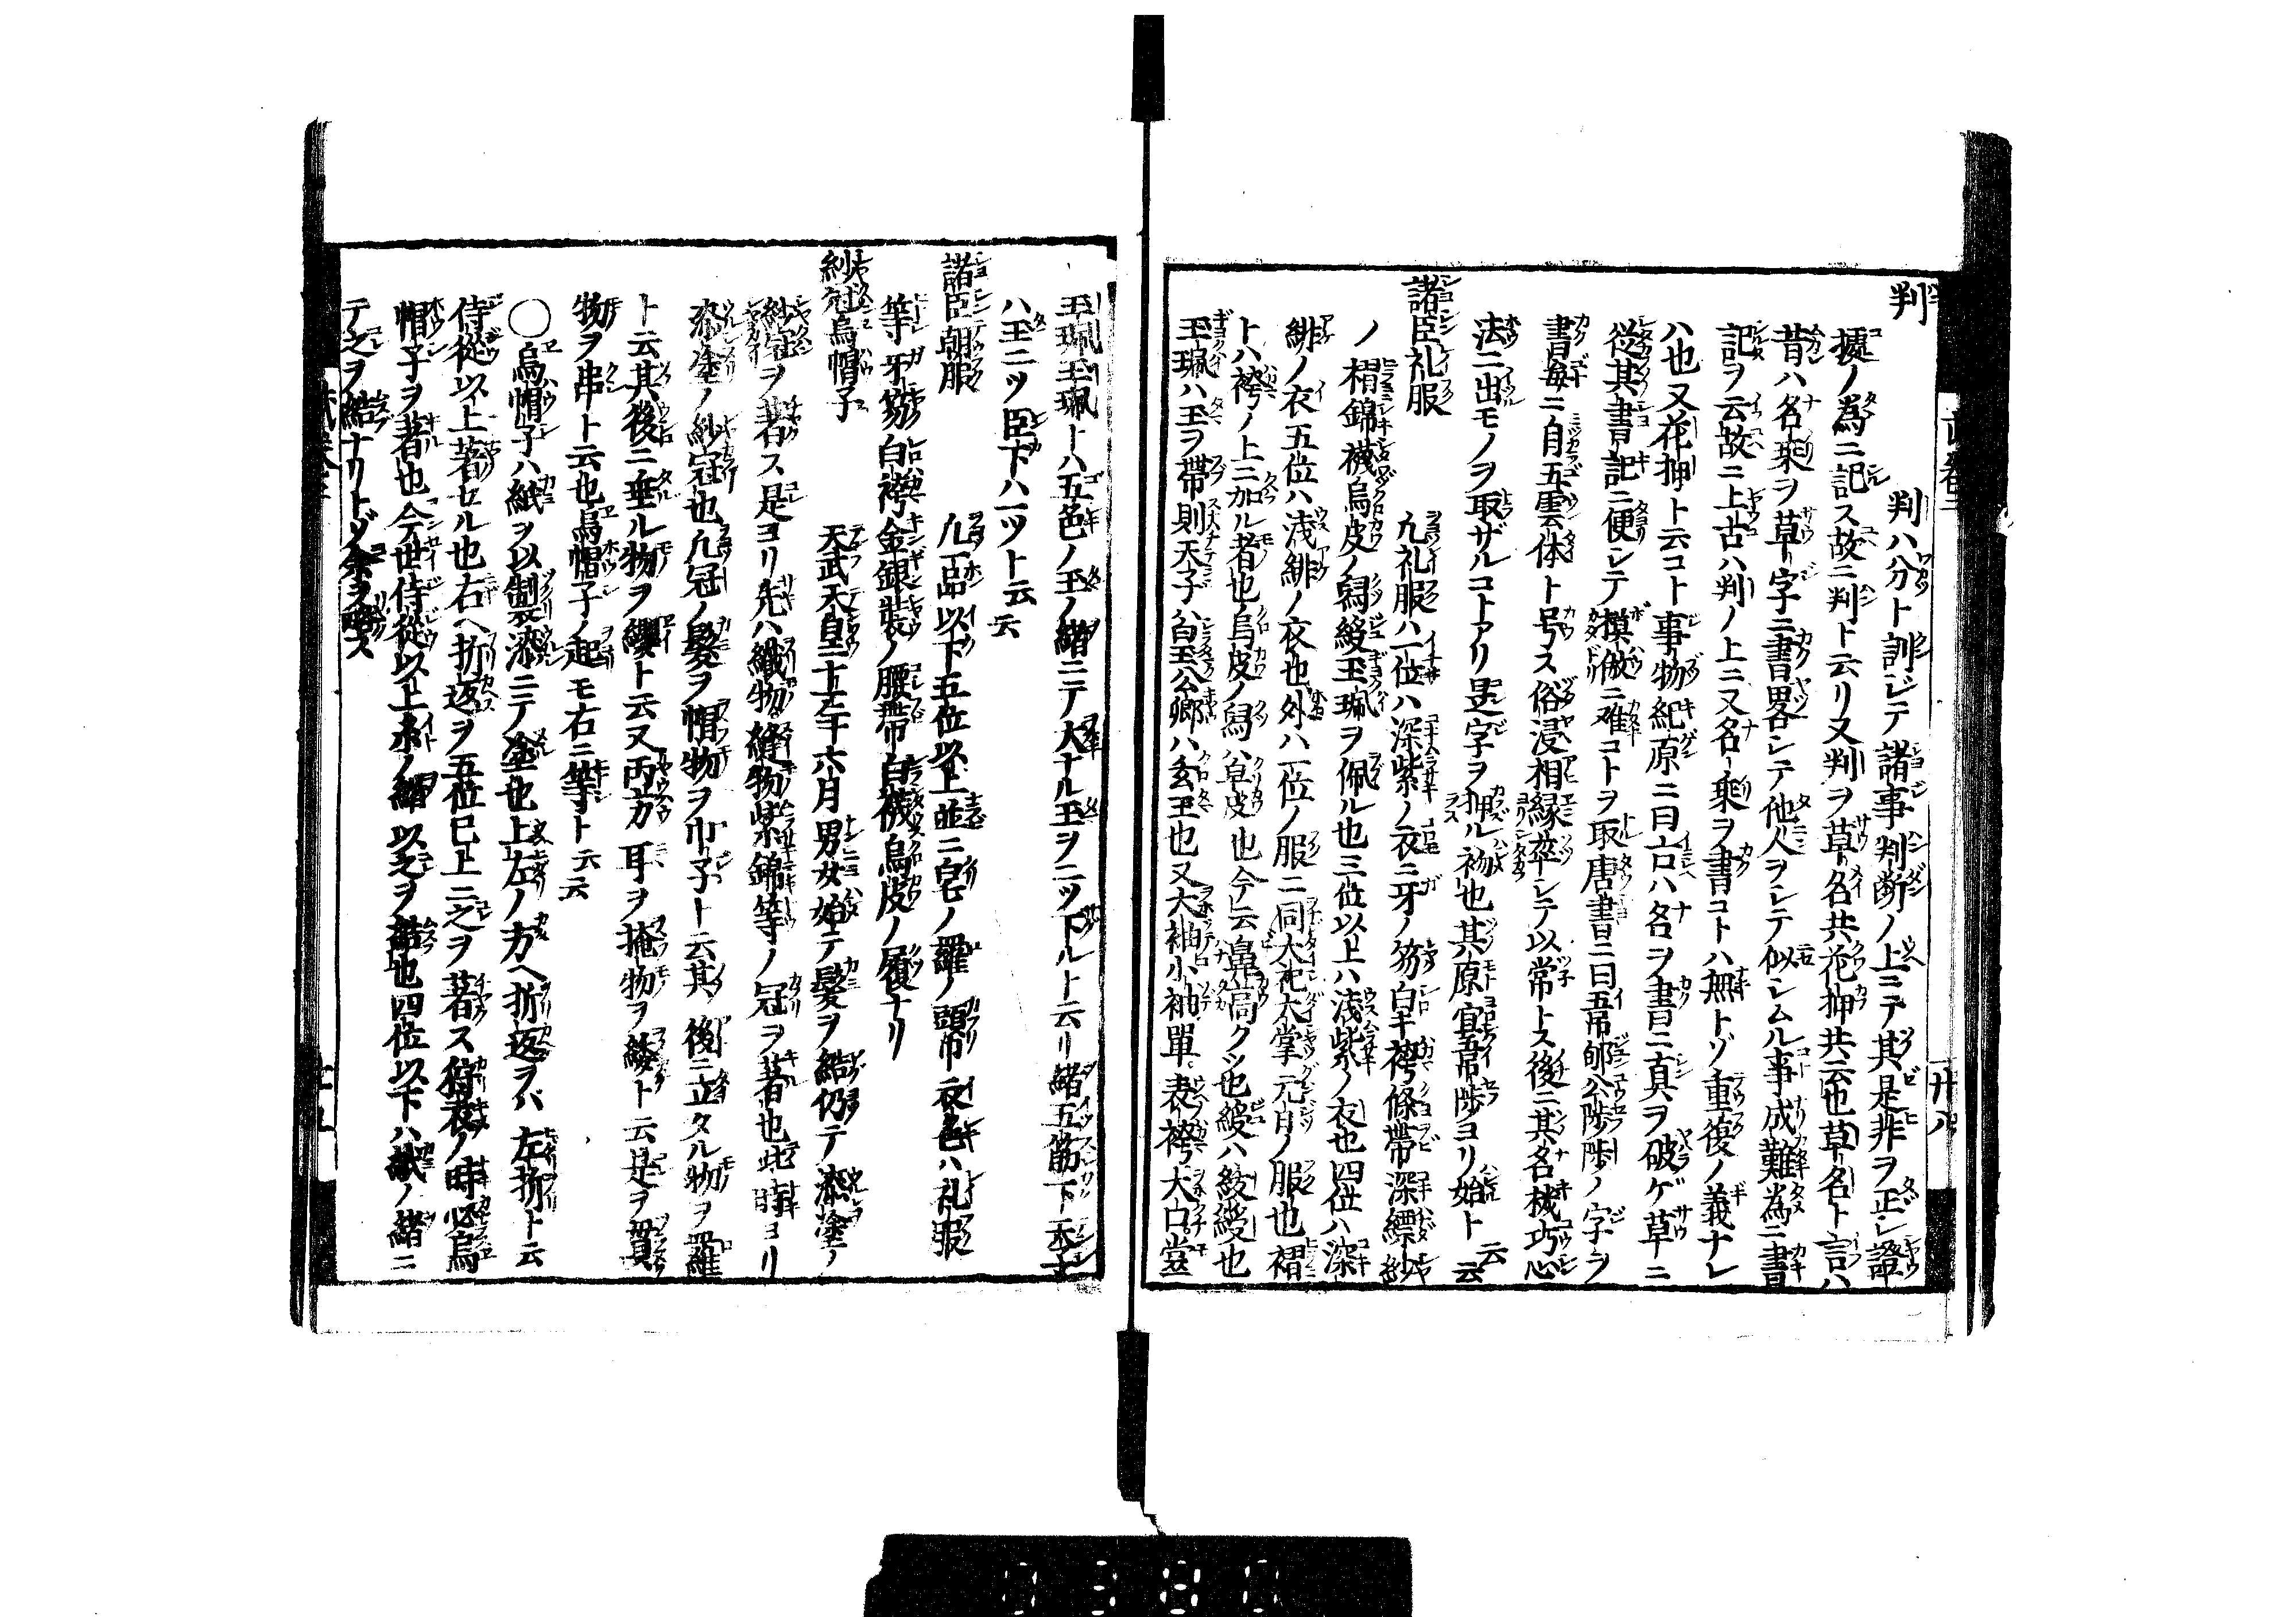 判 判ハ分ト訓ジテ諸事判断ノ上ニテ其是非ヲ正シ證
據ノ為ニ記ス故ニ判ト云リ又判ヲ草名共花押共云也草名ト言ハ
昔ハ名乗ヲ草字ニ書畧シテ他人ヲシテ似シムル事成難為ニ書
記ヲ云故ニ上古ハ判ノ上ニ又名乗ヲ書コトハ無トゾ重復ノ義ナレ
ハ也又花押ト云コト事物紀原ニ曰古ハ名ヲ書ニ真ヲ破ゲ草ニ
從其書記ニ便シテ摸倣ニ难コトヲ取唐書ニ曰韋郇公陟陟ノ字ヲ
書毎ニ自五雲体ト号ス俗浸相縁卒シテ以常トス後ニ其名機巧心
法ニ出モノヲ取ザルコトアリ是字ヲ押ル初也其原宜韋陟ヨリ始ト云云
諸臣礼服 凡礼服ハ一位ハ深紫ノ衣ニ牙ノ笏白袴條帶深縹紗
ノ褶錦襪烏皮ノ舄綬玉珮ヲ佩ル也三位以上ハ浅紫ノ衣也四位ハ深
緋ノ衣五位ハ浅緋ノ衣也外ハ一位ノ服ニ同大祀大掌元日ノ服也褶
トハ袴ノ上ニ加ル者也烏皮ノ舄ハ皂皮也今云鼻高クツ也綬ハ綾綬也
玉珮ハ玉ヲ帶則天子ハ白玉公卿ハ玄玉也又大袖小袖單表袴大口裳
玉珮玉珮トハ五色ノ玉ノ緒ニテ大ナル玉ヲ二ツ下ルト云リ緒五筋下天子
ハ玉二ツ臣下ハ一ツト云云
諸臣朝服 凡一品以下五位以上並ニ皂ノ羅ノ頭巾衣色ハ礼服
等牙笏白袴金銀装ノ腰帯白襪烏皮ノ履ナリ
紗冠烏帽子 天武天皇二十二年六月男女始テ髪ヲ結仍テ漆塗ノ
紗冠ヲ著ス是ヨリ先ハ織物縫物紫錦等ノ冠ヲ著也此時ヨリ
漆塗ノ紗冠也凡冠ノ髪ヲ帽物ヲ巾子ト云其後ニ立タル物ヲ羅
ト云其後ニ垂ル物ヲ纓ト云又両方耳ヲ掩物ヲ緌ト云是ヲ貫
物ヲ串ト云也烏帽子ノ起モ右ニ等ト云云
〇烏帽子ハ紙ヲ以製漆ニテ塗也上左ノ方ヘ折返ヲハ左折ト云
侍從以上著セル也右ヘ折返ヲ五位已上ニ之ヲ著ス狩衣ノ時必烏
帽子ヲ著也今世侍從以上糸ノ緒以之ヲ結也四位以下ハ紙ノ緒ニ
テ之ヲ結ナリトゾ余ヲ略ス
廿八